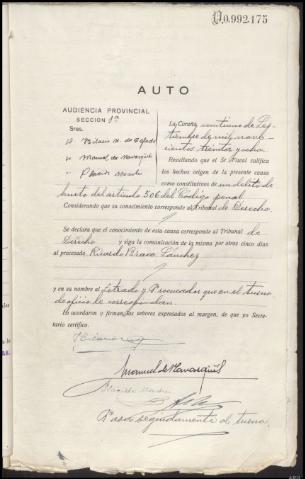 N.0.992.175
AUTO
AUDIENCIA PROVINCIAL
SECCION 1ª
Sres.
D.
" Manuel de
"
La Coruña, veintiuno de Sep-
tiembre de mil nove-
cientos treinta y ocho
Resultando que el Sr. Fiscal califica
los hechos origen de la presente causa
como constitutivos de un delito de
hurto del artículo 506 del Código penal
Considerando que su conocimiento corresponde al tribunal de Derecho.
Se declara que el conocimiento de esta causa corresponde al Tribunal de
Derecho y siga la comunicación de la misma por otros cinco días
al procesado Ricardo Bravo Sánchez
y en su nombre al Letrado y Procurador que en el turno
de oficio le correspondan.
Lo acordaron y firman los señores expresados al margen, de que yo Secre-
tario certifico.
Manuel de
Pasó seguidamente al turno